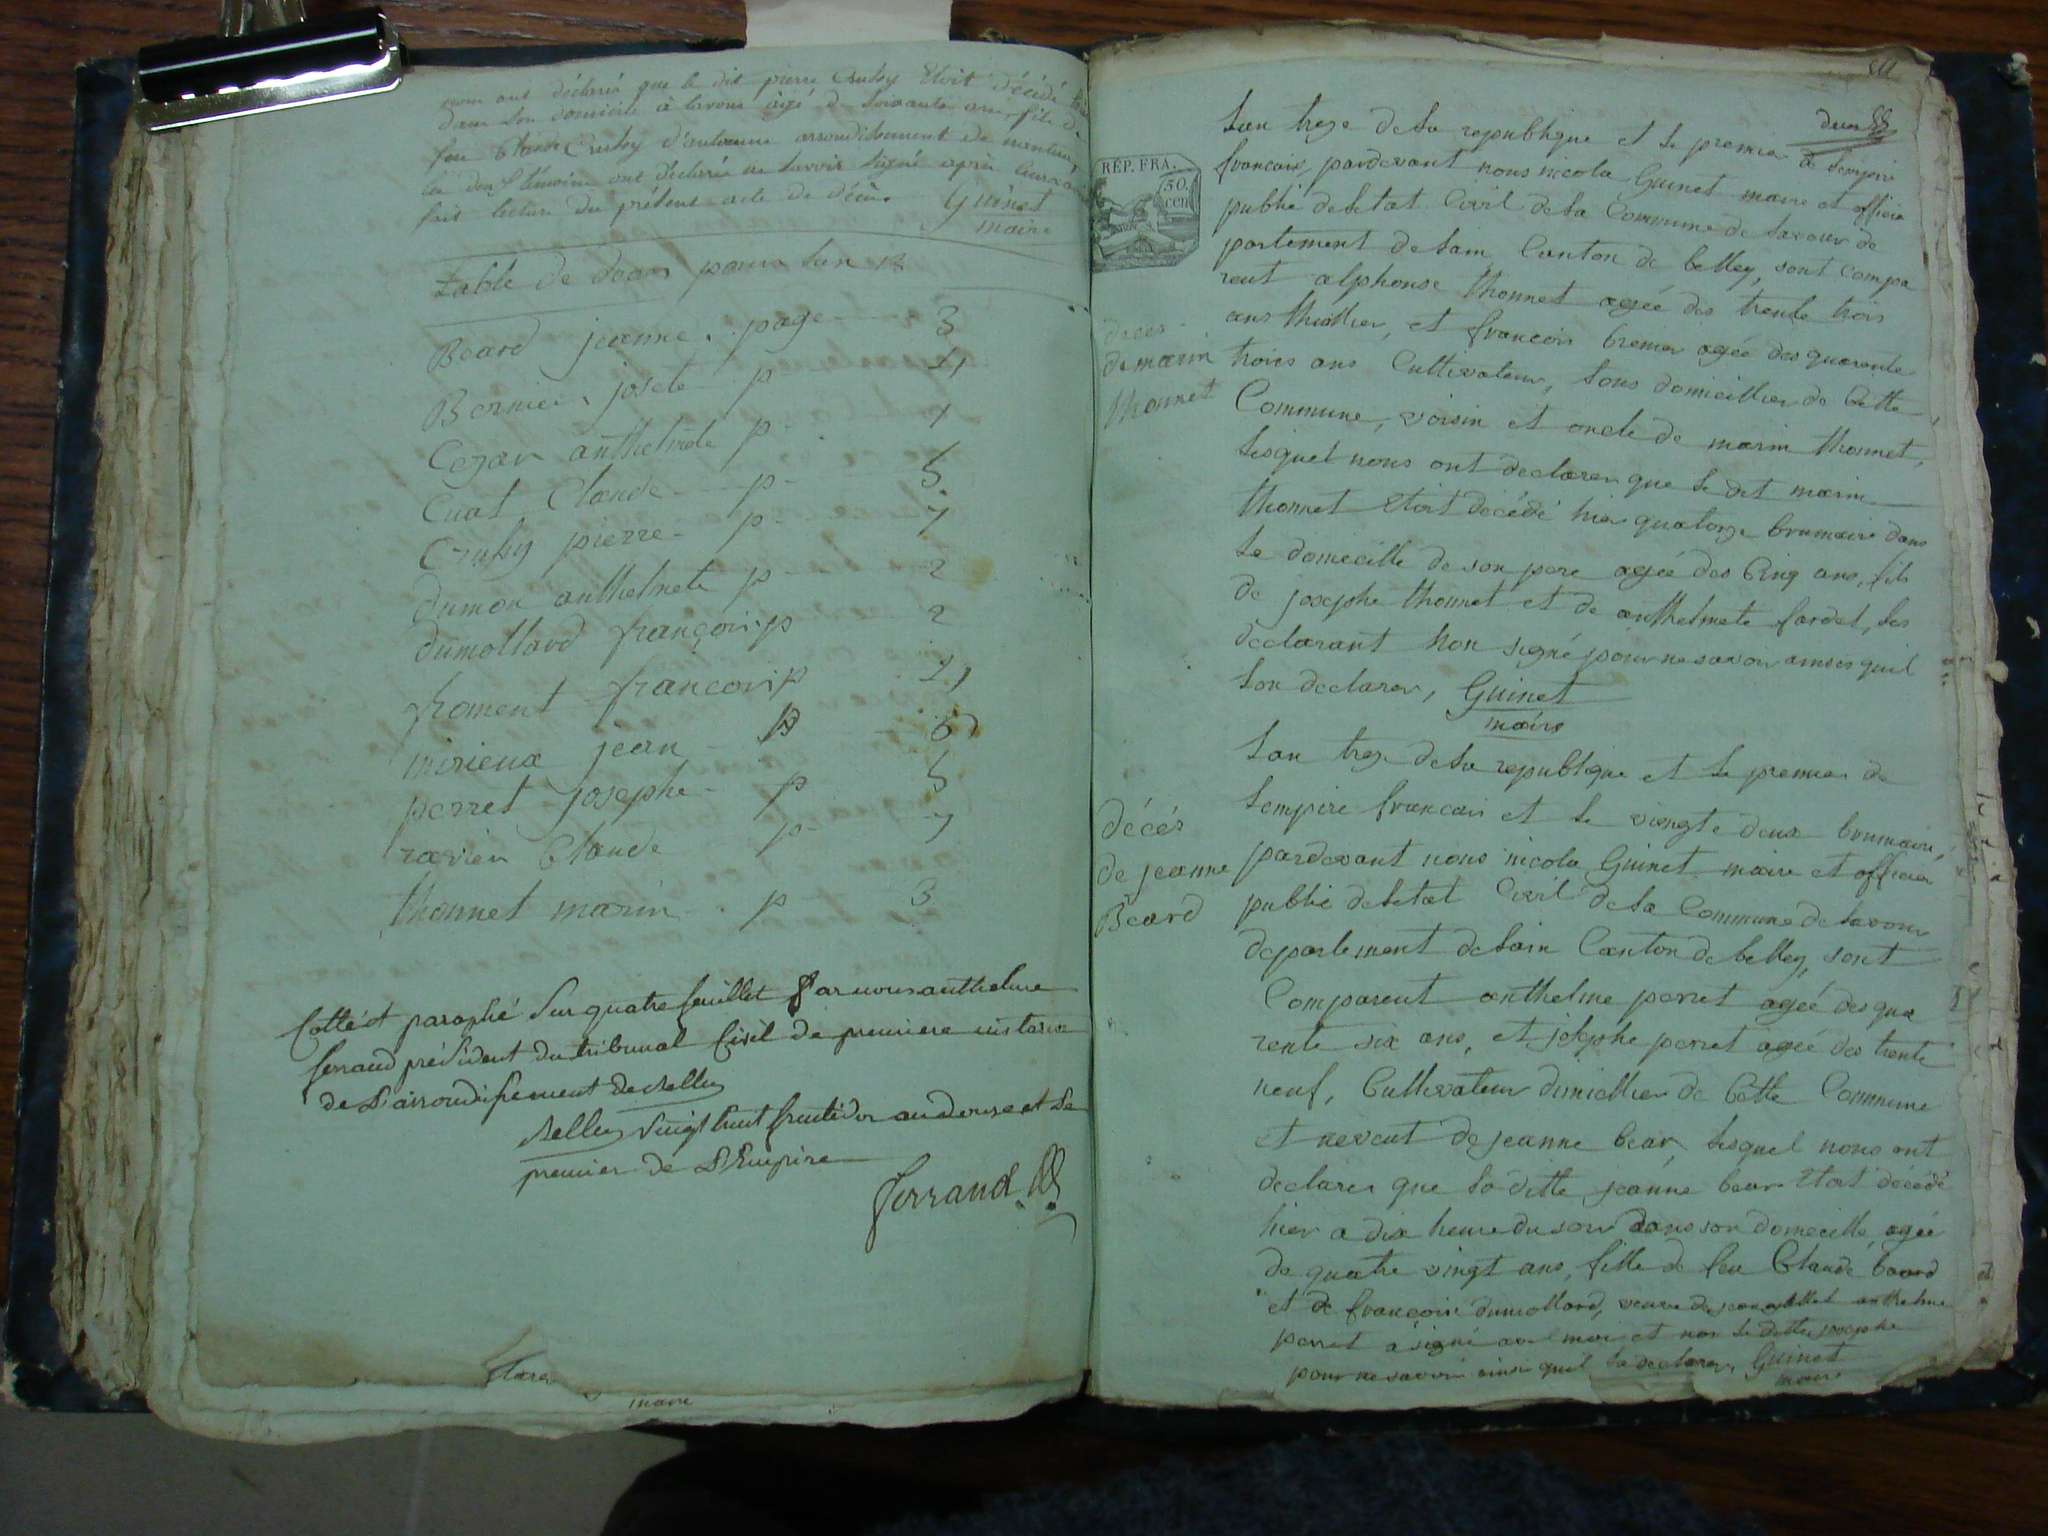 nous ont déclaré que le dit pierre Cruby Etoit décédé
dans son domicile à lavour âgé de Soixante ans, fils de
feu Claude Cruby d'autanne arrondissement de nantua,
les deux témoins ont déclaré ne savoir signé après leur avoir
fait lecture du présent acte de décès. Guinet
maire
table de deces pour lan 13
Beard jeanne. page 3
Bernier josete p 4
Cezar anthelmete p 1
Cuat Claude p 5
Cruby pierre p 7
dumon anthelmete p 2
dumollard françois p 2
froment francois p 4
mirieux jean p 6
perret josephe p 5
ravier Claude p 7
thonnet marin p 3
Cotté et paraphé Sur quatre feuillet Par nous anthelme
ferrand président du tribunal Civil de premiere instance
de L'arrondissement de Belley
Belley vingt huit fructidor an douze et Le
premier de L'Empire
ferrand
maire
deux
RÉP. FRA.
50.
cen
Lan treze de la republique et le premier de lempire
francais, pardevant nous nicola Guinet maire et officier
public de letat Civil de la Commune de lavour de
partement de lain Canton de belley, sont compa
rent alphonse thonnet agée des trente trois
ans thiollier, et francois bremier agée des quarente
trois ans Cultivateur, tous domicillier de Cette
Commune, voisin et oncle de marin thonnet,
lesquel nous ont declarer que le dit marin
thonnet Etoit décédé hier quatorze brumaire dans
le domicille de son pere agée des Cinq ans, fils
de josephe thonnet et de anthelmete fardel, les
declarant non signé pour ne savoir ainsis quil
lon declarer, Guinet
maire
deces
de marin
thonnet
Lan treze de la republique et le premier de
lempire francais et le viengte deux brumaire,
pardevant nous nicola Guinet maire et officier
public de letat Civil de la Commune de lavour
departement de lain Canton de belley, sont
Comparent anthelme perret agée des qua
rente six ans, et josephe perret agée des trente
neuf, Cultivateur dimicillier de Cette Commune
et neveut de jeanne bear, lesquel nous ont
declarer que la ditte jeanne bear Etoit décédé
hier a dix heure du soir dans son domicille, agée
de quatre vingt ans, fille de feu Claude beard
et de françoise dumollard, veuve de jean anthelme
perret a signé avec moi et non le ditte josephe
pour ne savoir ainsi quil la declarer, Guinet
maire
décés
de jeanne
Beard